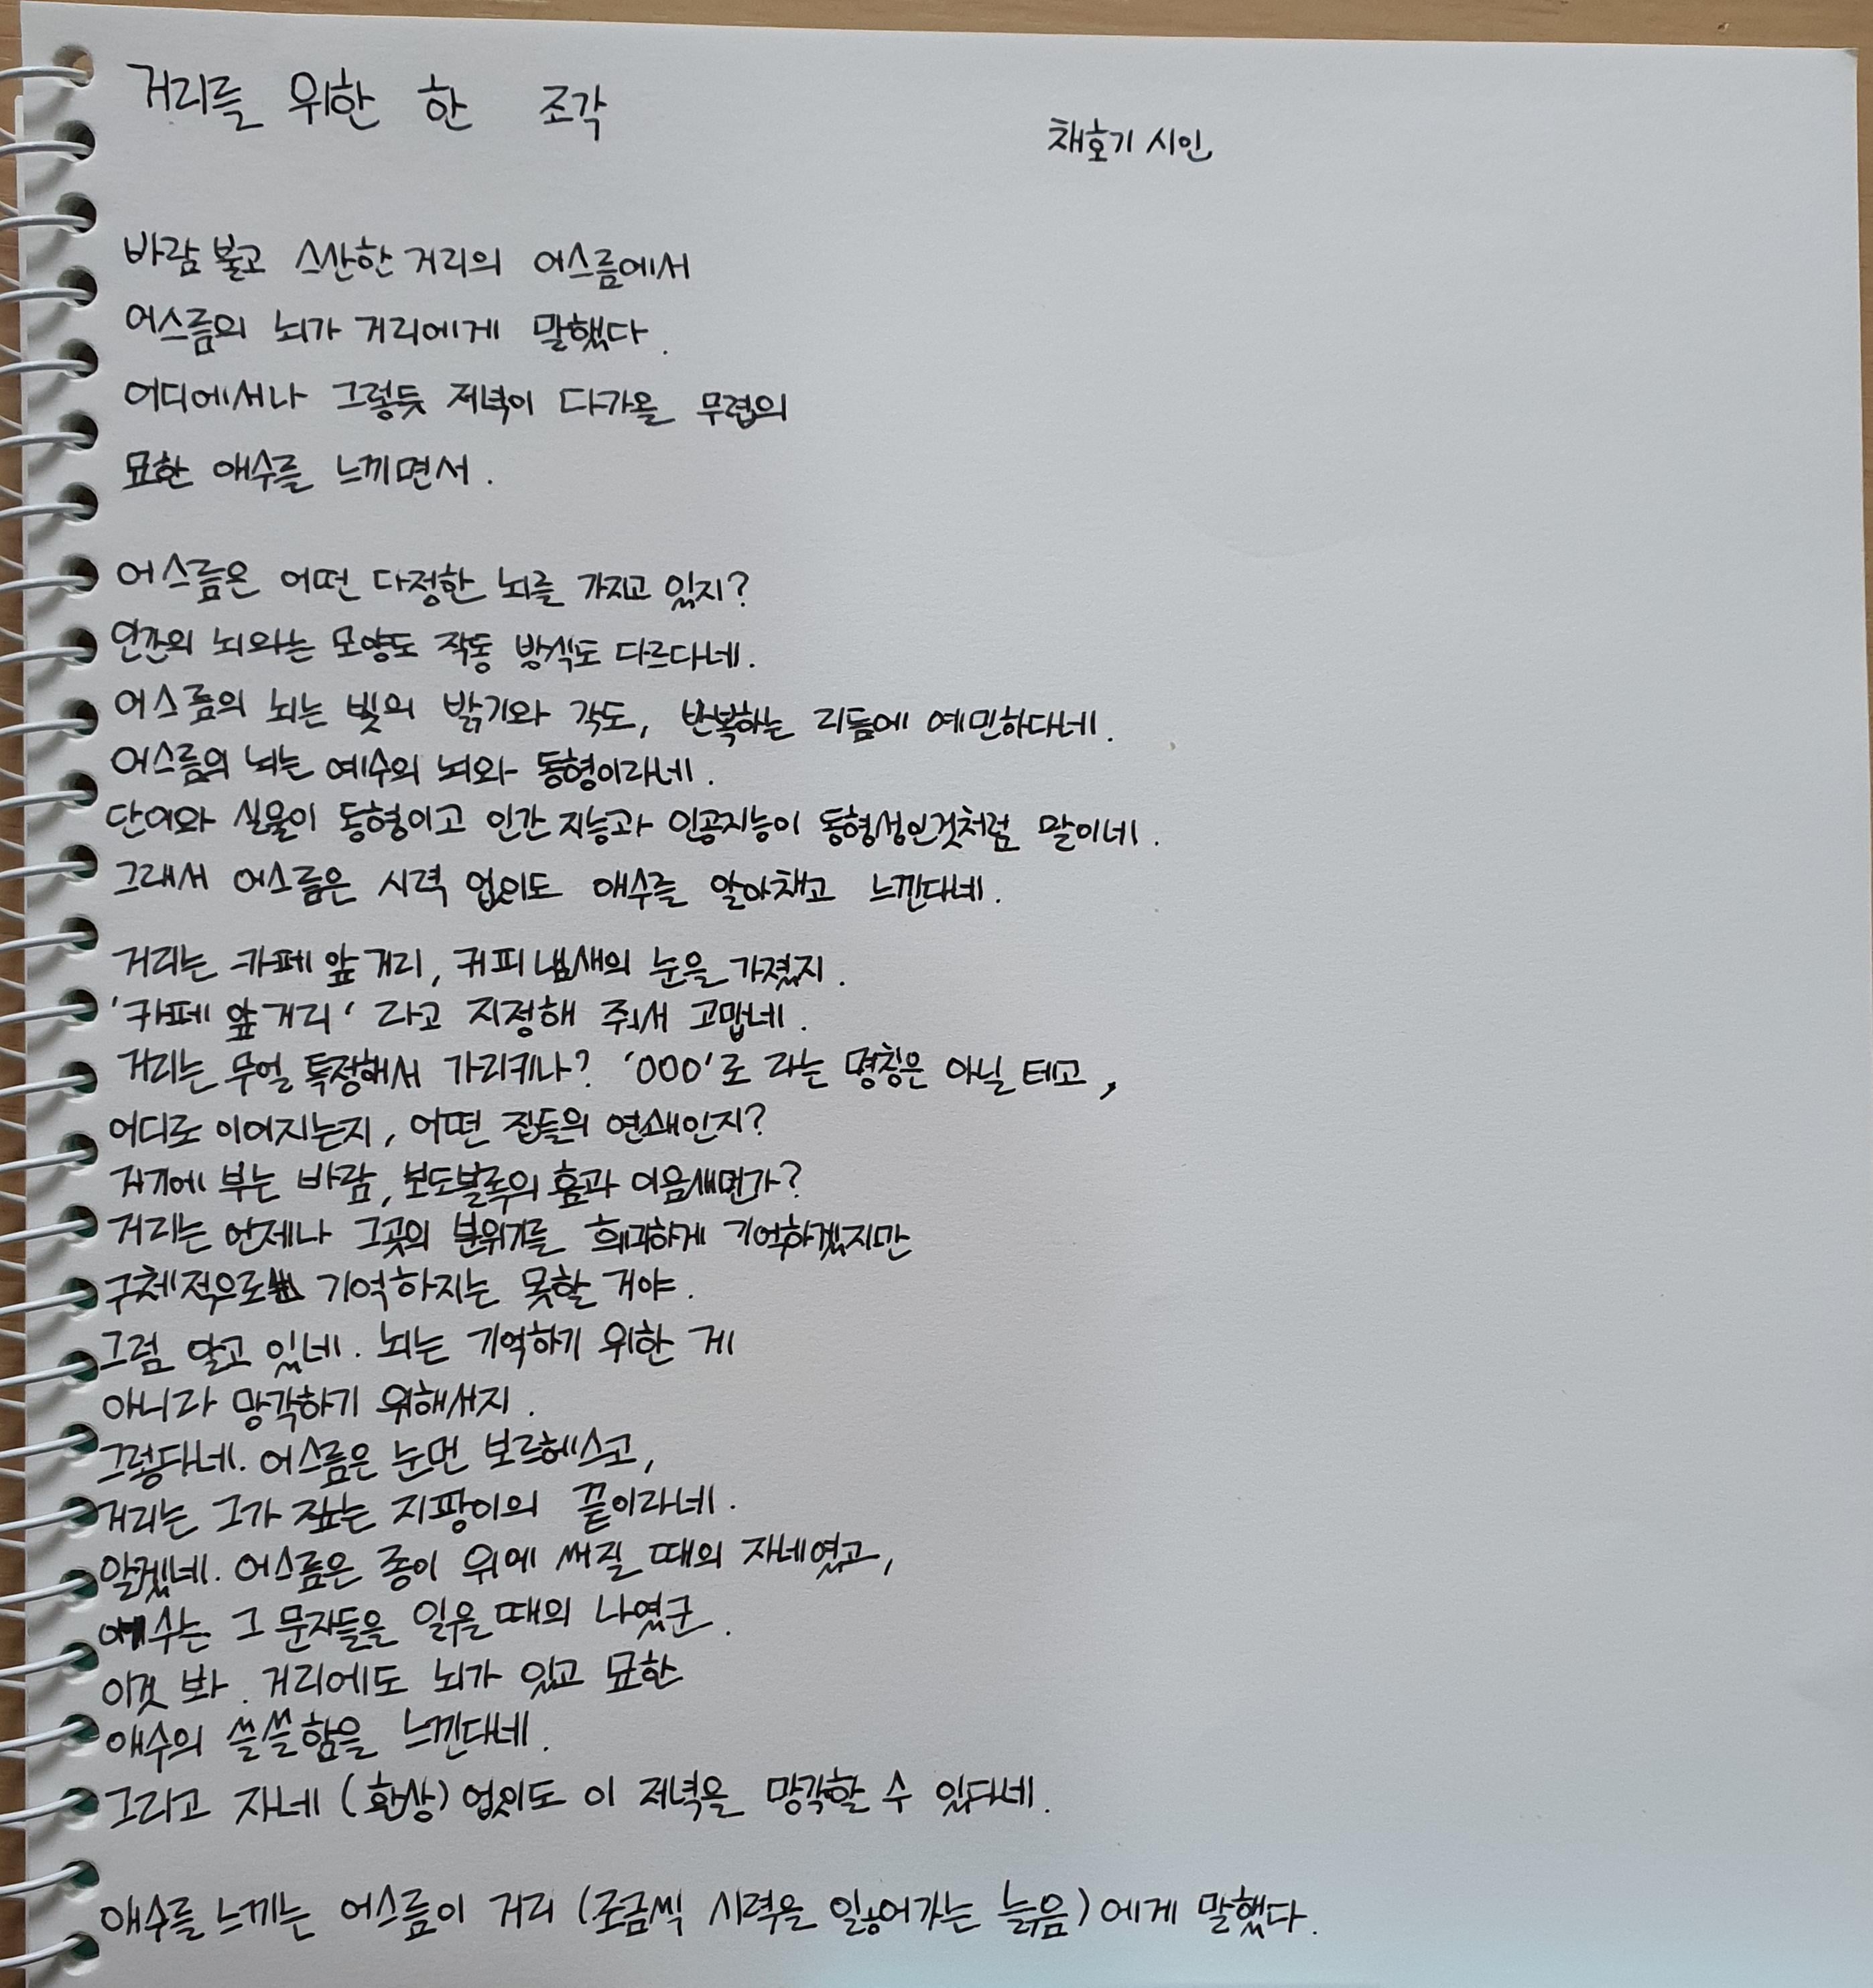 거리를 위한 한 조각
채호기 시인
바람 불고 스산한 거리의 어스름에서
어스름의 뇌가 거리에게 말했다.
어디에서나 그렇듯 저녁이 다가올 무렵의
묘한 애수를 느끼면서.
어스름은 어떤 다정한 뇌를 가지고 있지?
인간의 뇌와는 모양도 작동 방식도 다르다네.
어스름의 뇌는 빛의 밝기와 각도, 반복하는 리듬에 예민하다네.
어스름의 뇌는 예수의 뇌와 동형이라네.
단어와 실물이 동형이고 인간 지능과 인공지능이 동형성인것처럼 말이네.
그래서 어스름은 시력 없이도 애수를 알아채고 느낀다네.
거리는 카페 앞 거리, 커피 냄새의 눈을 가졌지.
'카페 앞 거리' 라고 지정해 줘서 고맙네.
거리는 무얼 특정해서 가리키나? '000'로 라는 명칭은 아닐 테고,
어디로 이어지는지, 어떤 집들의 연쇄인지?
거기에 부는 바람, 보도블록의 홈과 이음새먼가?
거리는 언제나 그곳의 분위기를 희과하게 기억하겠지만
구체적으로 기억하지는 못할 거야.
그럼 알고 있네. 뇌는 기억하기 위한 게
아니라 망각하기 위해서지.
그렇다네. 어스름은 눈먼 보르헤스고,
거리는 그가 짚는 지팡이의 끝이라네.
알겠네. 어스름은 종이 위에 써질 때의 자네였고,
애수는 그 문자들을 읽을 때의 나였군.
이것 봐. 거리에도 뇌가 있고 묘한
애수의 쓸쓸함을 느낀다네.
그리고 자네 (환상) 없이도 이 저녁을 망각할 수 있다네.
애수를 느끼는 어스름이 거리 (조금씩 시력을 잃어가는 늙음) 에게 말했다.